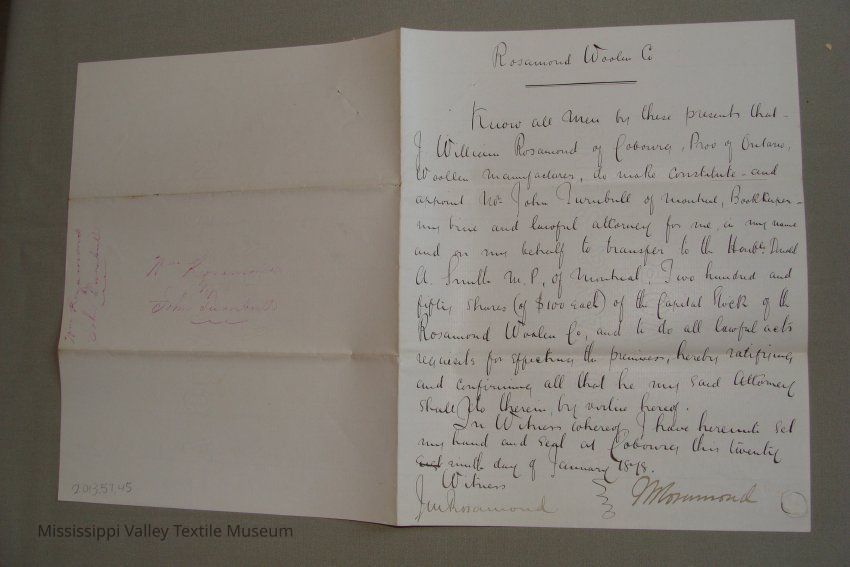 Rosamond Woolen Co
Know all Men by these presents that
I William Rosamond of Cobourg, Prov of Ontario,
Woollen Manufacturer, do make constitute and
appoint Mr John Turnbull of Montreal, Book Keeper
my true and lawful attorney for me, in my name
and on my behalf to transfer to the Honble Donald
A. Smith M.P, of Montreal, Two hundred and
fifty Shares (of $100 each) of the Capital Stock of the
Rosamond Woolen Co, and to do all lawful acts
requisite for effecting the premises, hereby ratifying
and confirming all that he my said Attorney
shall do therein, by virtue hereof.
In Witness whereof, I have hereunto set
my hand and seal at Cobourg this twenty
ninth day of January 1878.
Witness
Rosamond
Rosamond
Wm Rosamond
to
John Turnbull
Wm Rosamond
to
John Turnbull
2013.57.45
Mississippi Valley Textile Museum